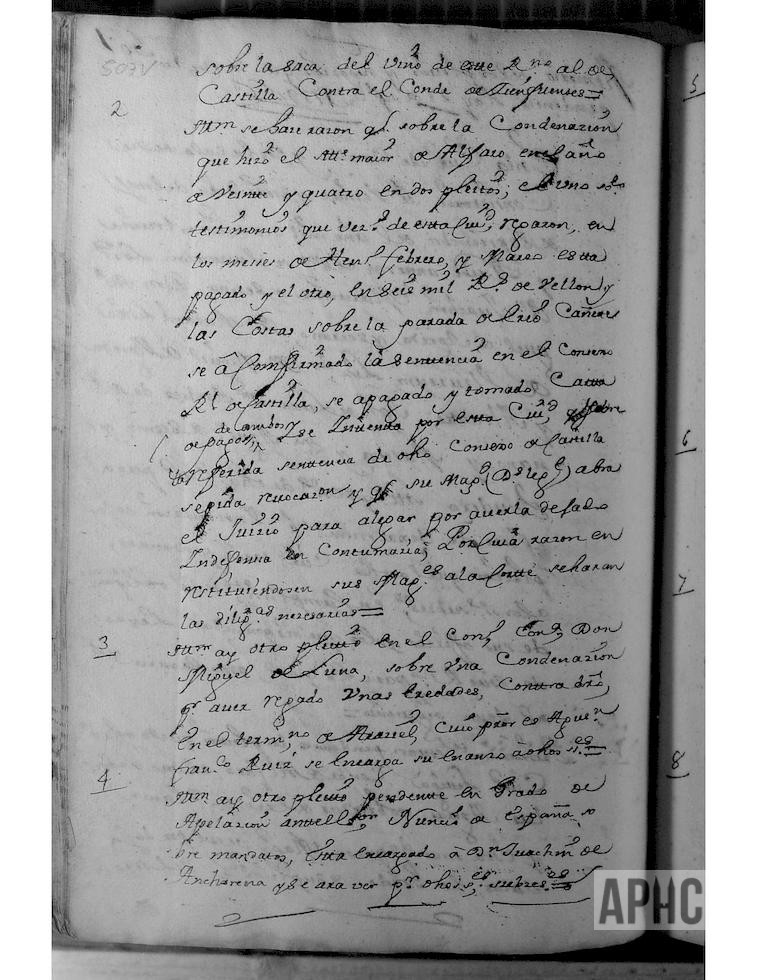 507v
sobre la saca del Vino de este Rno al de
Castilla Contra el Conde de Zienfuentes=
2
Ittm se hace razon qe. sobre la Condenazion
que hizo el Alle maior de Alfaro en el año
de Veinte y quatro en dos pleitos, el Uno sre
testimonios que Verº. de esta Ciud, regaron, en
los meses de Henº febrero, y Marzo esta
pagado y el otro, en Seis mil Rs. de Vellon y
las Costas sobre la parada de Cañetes
se â Comfirmado la Sentencia en el Consexo
Rl de Castilla, se a pagado y tomado Carta
de pago, de ambos y Se Intenta por esta Ciud, sobre
la referida sentencia de dho Consexo de Castilla
se pida revocazon y qe su Magd (Ds le ge) abra
el Juicio para alegar por averla dejado
Indefensa en Contumazia, Por Cuia razon en
restituiendosen sus Mages a la Corte se haran
las diligas necesarias=
3
Ittm ay otro pleito en el Consº Con Don
Miguel de Luna, sobre Una Condenazion
qe aver regado Unas Eredades, Contra dro,
En el termino de Araciel, Cuio pror es Aguen
Franco Ruiz se Encarga su Enanzo â dhos sres=
4
Ittm ay otro pleito pendiente en Grado de
Apelazion ante el Nuncio de España so
bre mandatos, Esta Encargado â Dn Juachin de
Ancharena y Se ara ver pr dhos sres subres=
5
6
7
8
APHC